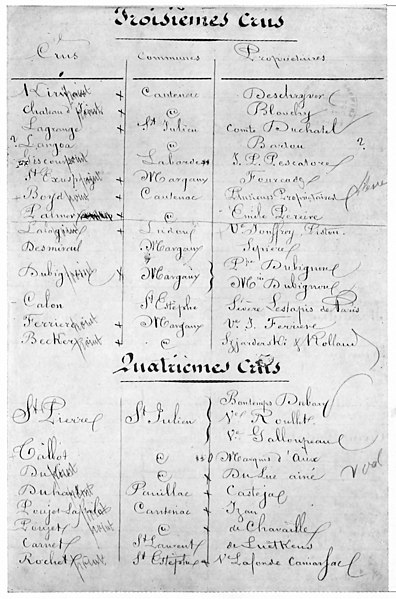 Troisièmes Crus
Crus Communes Propriétaires
Kirwan Cantenac Deschryver
Chateau d' @ Blanchy
Lagrange St Julien Comte Duchatel
Langoa @ Barton ?
Giscours Labarde J. P. Pescatore
St Exupery Margaux Fourcade
Boyd Cantenac Plusieurs Propriétaires
Palmer @ Emile Pereire
Lalagune Ludon Ve Jouffroy Piston
Desmirail Margaux Sipière
Dubignon Margaux Phpe Dubignon
Mce Dubignon
Calon St Estèphe Sévère Lestapis de Paris
Ferrière Margaux Ve J. Ferrière
Becker @ Szjarderski & Rolland
Quatrièmes Crus
St Pierre St Julien Bontemps Dubarry
Ve Roullet
Ve Galloupeau
Talbot @ Marquis d'Aux
Du @ Du Luc ainé
Duhart Pauillac Casteja
Poujet Lassalle Cantenac Izan
Poujet @ de Chavaille
Carnet St Laurent de Luetkens
Rochet St Estèphe Ve Lafonde Camarsac